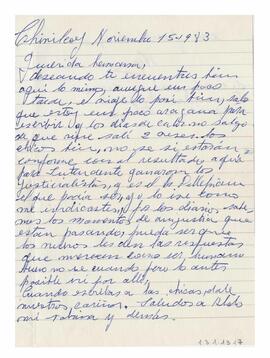 Chivilcoy Noviembre 15-973
Querida hermana:
deseando te encuentres bien
aquí lo mismo, aunque un poco
tarde, el viaje lo pasé bien, sabe
que estoy un poco aragana para
escribir y los días de calor no salgo
se que aquí salí 2 veces. los
chicos bien, no se si estarán
conforme con el resultado, aquí
para intendente ganaron los
justicialistas, y es el
el que podía ser, y lo hice como
me indicaste, por los diarios sabe
mos los momentos de angustia que
están pasando, pueda ser que
los nuevos les den las respuestas
que merecen como ser humano
bueno no se cuando pero lo antes
posible iré por allí,
Cuando escribas a las chicas, dale
nuestros cariños. Saludos a
mi sobrina y demás.
131317